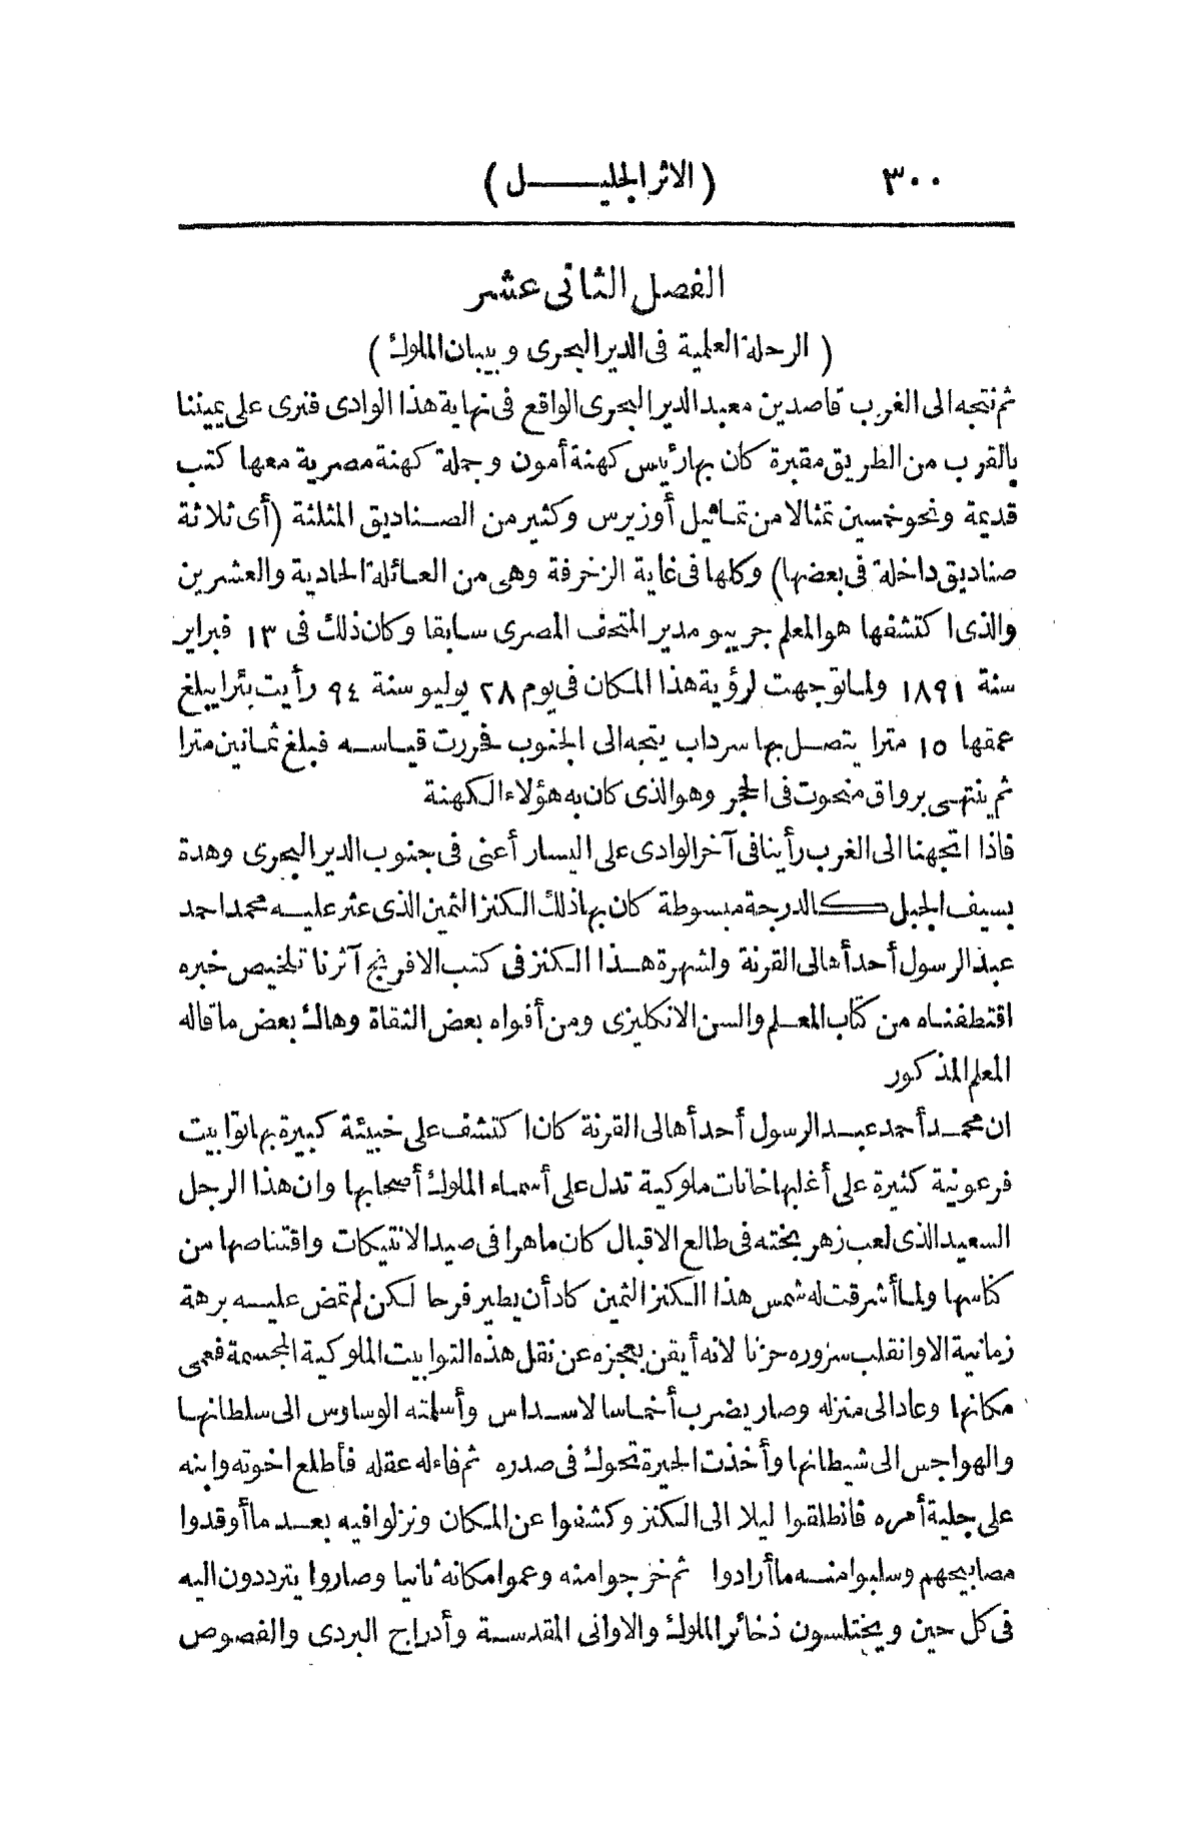 ٣٠٠
(الاثر الجليل)
الفصل الثانى عشر
(الرحلة العلمية فى الدير البحرى وبيبان الملوك)
ثم نتجه الى الغرب قاصدين معبد الدير البحرى الواقع فى نهاية هذا الوادى فنرى على يميننا
بالقرب من الطريق مقبرة كان بها رئيس كهنة أمون وجملة كهنة مصرية معها كتب
قديمة ونحو خمسين تمثالا من تماثيل أوزيرس وكثير من الصناديق المثلثة (أى ثلاثة
صناديق داخلة فى بعضها) وكلها فى غاية الزخرفة وهى من العائلة الحادية والعشرين
والذى اكتشفها هو المعلم جريبو مدير المتحف المصرى سابقا وكان ذلك فى ١٣ فبراير
سنة ١٨٩١ ولما توجهت لرؤية هذا المكان فى يوم ٢٨ يوليو سنة ٩٤ رأيت بئرا يبلغ
عمقها ١٥ مترا يتصل بها سرداب يتجه الى الجنوب فحررت قياسه فبلغ ثمانين مترا
ثم ينتهى برواق منحوت فى الحجر وهو الذى كان به هؤلاء الكهنة
فاذا اتجهنا الى الغرب رأينا فى آخر الوادى على اليسار أعنى فى جنوب الدير البحرى وهدة
بسيف الجبل كالدرجة مبسوطة كان بها ذلك الكنز الثمين الذى عثر عليه محمد احمد
عبد الرسول أحد أهالى القرنة ولشهرة هذا الكنز فى كتب الافرنج آثرنا تلخيص خبره
اقتطفناه من كتاب المعلم والسن الانكليزى ومن أفواه بعض الثقاة وهاك بعض ما قاله
المعلم المذكور
ان محمد أحمد عبد الرسول أحد أهالى القرنة كان اكتشف على خبيئة كبيرة بها توابيت
فرعونية كثيرة على أغلبها خانات ملوكية تدل على أسماء الملوك أصحابها وان هذا الرجل
السعيد الذى لعب زهر بخته فى طالع الاقبال كان ماهرا فى صيد الانتيكات واقتناصها من
كناسها ولما أشرقت له شمس هذا الكنز الثمين كاد أن يطير فرحا لكن لم تمض عليه برهة
زمانية الا وانقلب سروره حزنا لانه أيقن بعجزه عن نقل هذه التوابيت الملوكية المجسمة فعمى
مكانها وعاد الى منزله وصار يضرب أخماسا لاسداس وأسلمته الوساوس الى سلطانها
والهواجس الى شيطانها وأخذت الحيرة تحوك فى صدره ثم فاء له عقله فأطلع اخوته وابنه
على جلية أمره فانطلقوا ليلا الى الكنز وكشفوا عن المكان ونزلوا فيه بعد ما أوقدوا
مصابيحهم وسلبوا منه ما أرادوا ثم خرجوا منه وعموا مكانه ثانيا وصاروا يترددون اليه
فى كل حين ويختلسون ذخائر الملوك والاوانى المقدسة وأدراج البردى والفصوص